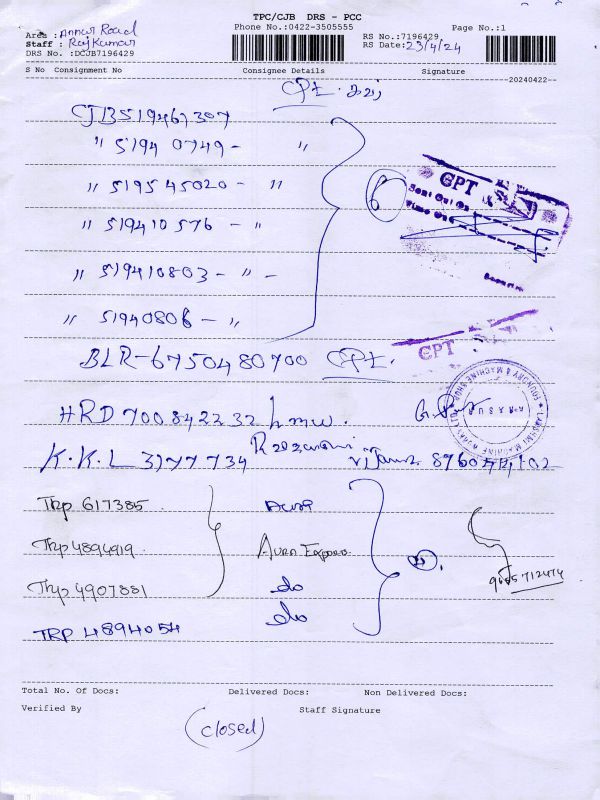 TPC/CJB DRS - PCC
Phone No.:0422-3505555
Page No.:1
Area : Annur Road
Staff : Rajkumar
DRS No. :DCJB7196429
RS No.:7196429
RS Date:23/4/24
S No Consignment No Consignee Details Signature
20240422
CPT.
CJB519467307
" 51940749 - "
" 519545020 - "
" 519410576 - "
" 519410803 - " -
" 51940806 - "
6
GPT
Sent Out On
Time Out
BLR-6750480700 CPT.
GPT
HRD 700842232
LAKSHMI MACHINE WORKS LTD
FOUNDRY & MACHINE SHOP
ARASUR
K.K.L 3177734
Trp 617385 Aura
Trp 4894919. Aura Exports
Trp 4907881 do
TRP 4894054 do
4.
Total No. Of Docs: Delivered Docs: Non Delivered Docs:
Verified By Staff Signature
(closed)